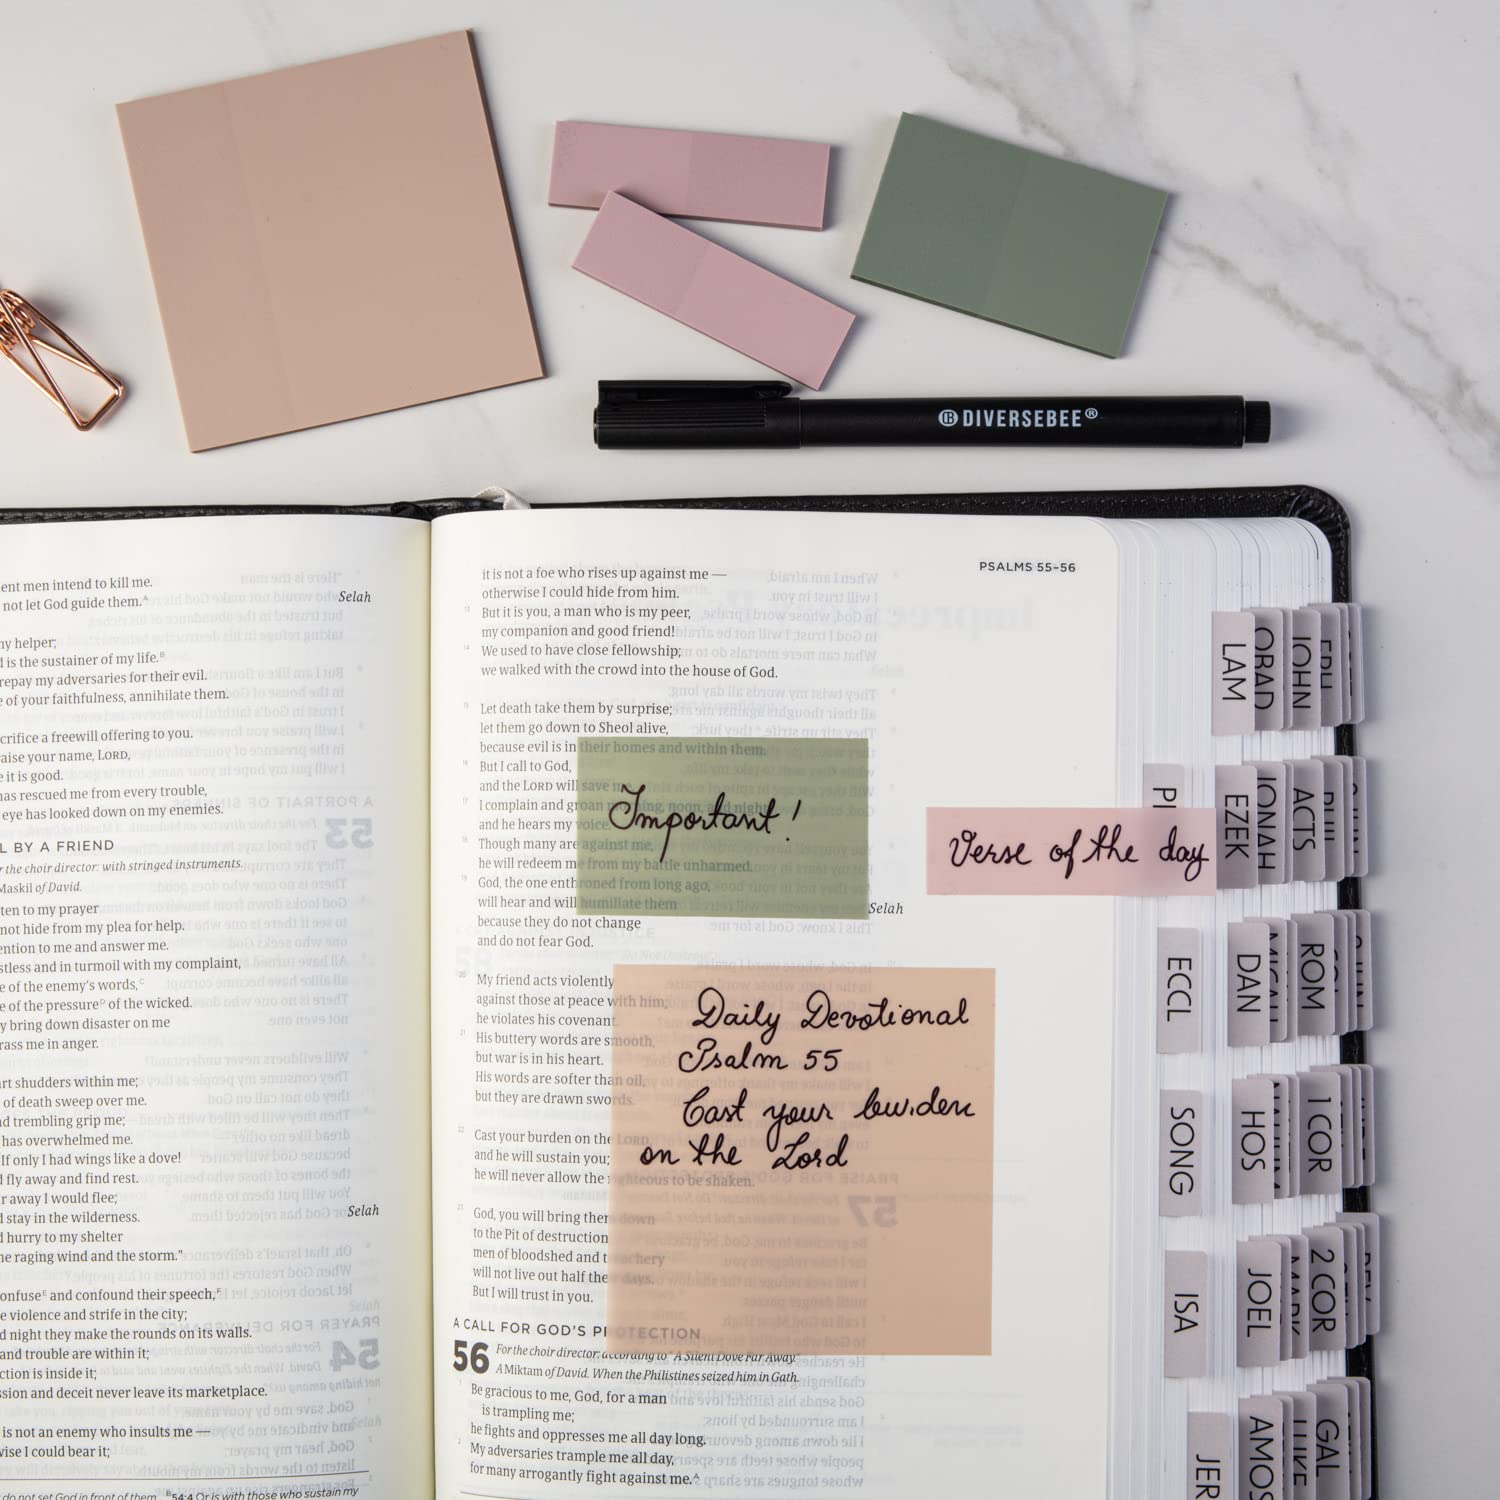 DIVERSEBEE®
ent men intend to kill me.
not let God guide them.ᴬ
Selah
my helper;
is the sustainer of my life.ᴮ
repay my adversaries for their evil.
of your faithfulness, annihilate them.
sacrifice a freewill offering to you.
raise your name, LORD,
it is good.
has rescued me from every trouble,
eye has looked down on my enemies.
BY A FRIEND
the choir director: with stringed instruments.
Maskil of David.
ten to my prayer
not hide from my plea for help.
ention to me and answer me.
stless and in turmoil with my complaint,
of the enemy's words,ᶜ
of the pressureᴰ of the wicked.
bring down disaster on me
rass me in anger.
shudders within me;
of death sweep over me.
trembling grip me;
has overwhelmed me.
If only I had wings like a dove!
fly away and find rest.
away I would flee;
stay in the wilderness.
Selah
hurry to my shelter
raging wind and the storm."
onfuseᴱ and confound their speech,ᶠ
violence and strife in the city;
night they make the rounds on its walls.
and trouble are within it;
ction is inside it;
ssion and deceit never leave its marketplace.
is not an enemy who insults me —
wise I could bear it;
do not set God in front of them ᴮ54:4 Or is with those who sustain my
PSALMS 55–56
it is not a foe who rises up against me —
otherwise I could hide from him.
13 But it is you, a man who is my peer,
my companion and good friend!
14 We used to have close fellowship;
we walked with the crowd into the house of God.
15 Let death take them by surprise;
let them go down to Sheol alive,
because evil is in their homes and within them.
16 But I call to God,
and the LORD will save me.
17 I complain and groan morning, noon, and night,
and he hears my voice.
18 Though many are against me,
he will redeem me from my battle unharmed.
19 God, the one enthroned from long ago,
will hear and will humiliate them
Selah
because they do not change
and do not fear God.
20 My friend acts violently
against those at peace with him;
he violates his covenant.
21 His buttery words are smooth,
but war is in his heart.
His words are softer than oil,
but they are drawn swords.
22 Cast your burden on the LORD,
and he will sustain you;
he will never allow the righteous to be shaken.
23 God, you will bring them down
to the Pit of destruction;
men of bloodshed and treachery
will not live out half their days.
But I will trust in you.
A CALL FOR GOD'S PROTECTION
56 For the choir director: according to "A Silent Dove Far Away."
A Miktam of David. When the Philistines seized him in Gath.
Be gracious to me, God, for a man
is trampling me;
he fights and oppresses me all day long.
2 My adversaries trample me all day,
for many arrogantly fight against me.ᴬ
Important!
Verse of the day
Daily Devotional
Psalm 55
Cast your burden
on the Lord
LAM
OBAD
JOHN
EPH
EZEK
JONAH
ACTS
PHIL
ECCL
DAN
MICAH
ROM
COL
SONG
HOS
NAHUM
1 COR
ISA
JOEL
MARK
2 COR
REV
JER
AMOS
LUKE
GAL